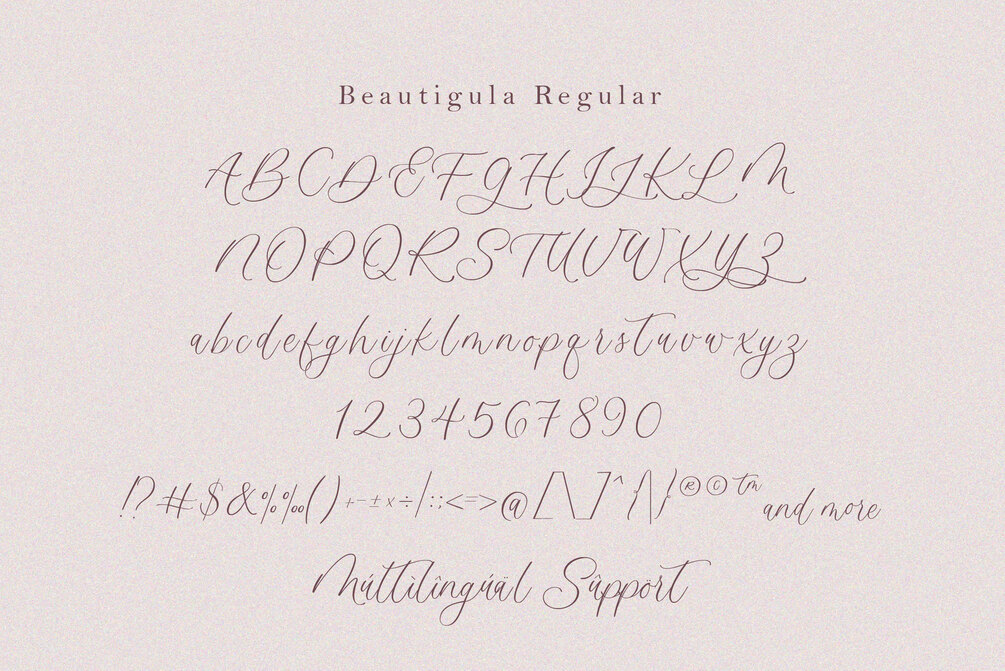 Beautigula Regular
ABCDEFGHIJKLM
NOPQRSTUVWXYZ
abcdefghijklmnopqrstuvwxyz
1234567890
!?#$&%‰()+−±×÷/:;<=>@[\]^{|}®©™ and more
Múltìlîngúäl Sûppört